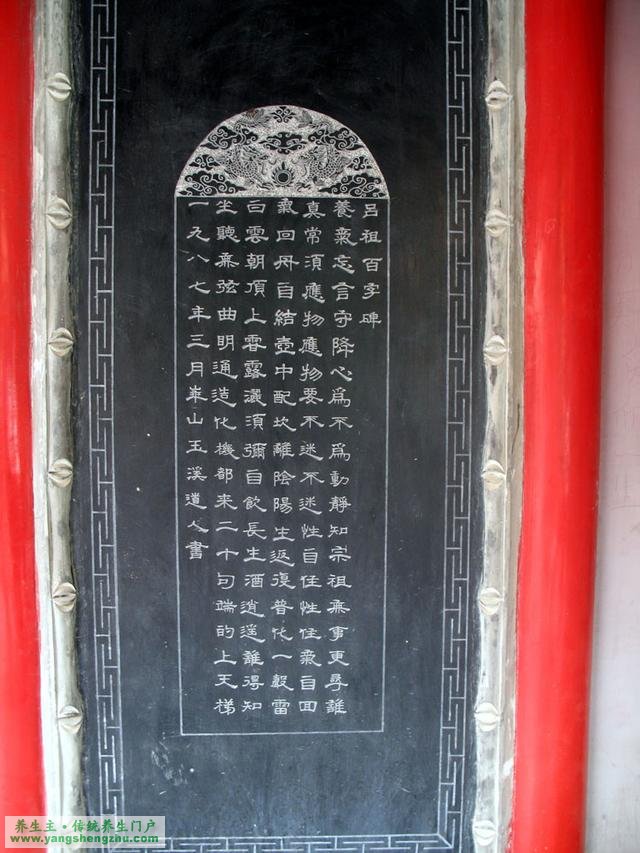 呂祖百字碑
養氣忘言守降心爲不爲動靜知宗祖無事更尋誰
真常須應物應物要不迷不迷性自住性住氣自回
氣回丹自結壺中配坎離陰陽生返復普化一聲雷
白雲朝頂上露灑須彌自飲長生酒逍遥誰得知
坐聽無弦曲明通造化機都來二十句端的上天梯
一九八七年三月華山玉溪道人書
养生主·传统养生门户
www.yangshengzhu.com